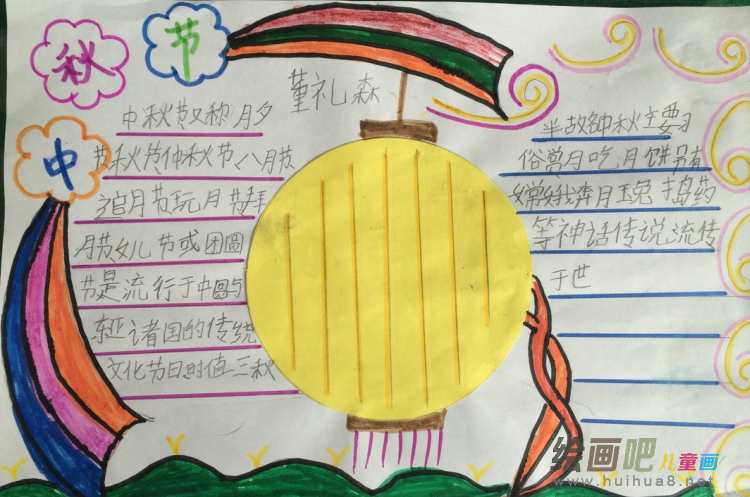 中秋节
董礼森
中秋节又称月夕
节秋节仲秋节八月节
追月节玩月节拜
月节女儿节或团圆
节是流行于中国与
东亚诸国的传统
文化节日时值三秋
半故钟秋主要习
俗赏月吃月饼另有
嫦娥奔月玉兔捣药
等神话传说流传
于世
绘画吧儿童画
www.huihua8.net